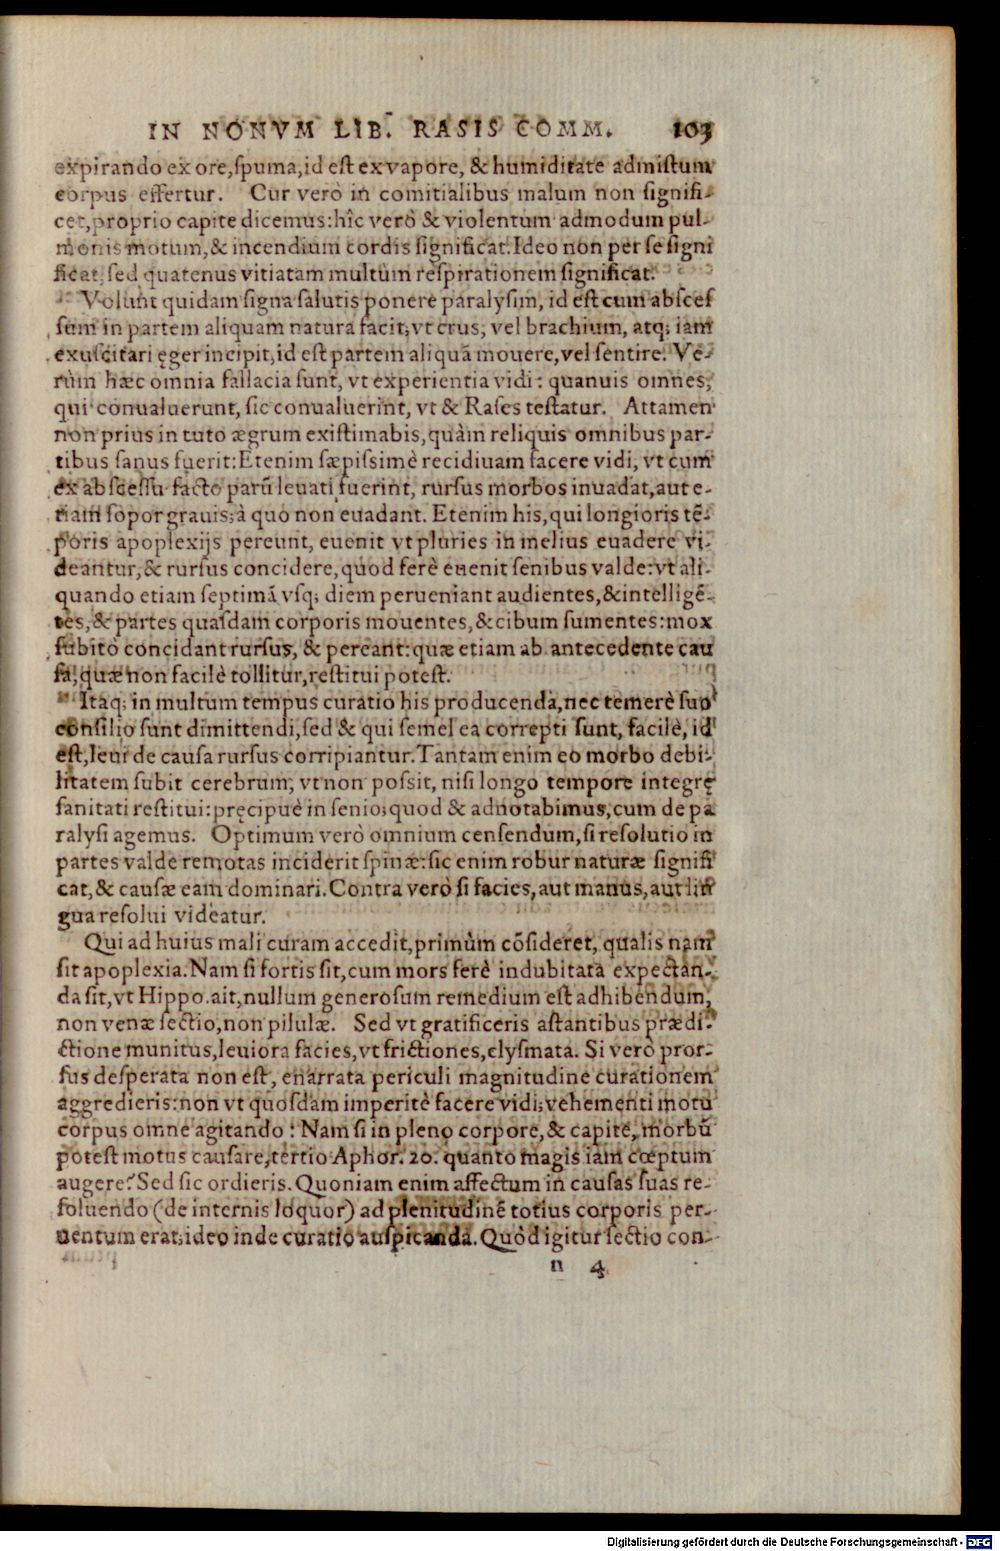 IN NONVM LIB. RASIS COMM. 103
expirando ex ore, spuma, id est ex vapore, & humiditate admistum
corpus effertur. Cur verò in comitialibus malum non signifi-
cet, proprio capite dicemus: hîc verò & violentum admodum pul-
monis motum, & incendium cordis significat. Ideo non per se signi
ficat, sed quatenus vitiatam multùm respirationem significat.
Volunt quidam signa salutis ponere paralysim, id est cum absces
sum in partem aliquam natura facit, vt crus, vel brachium, atq; iam
exuscitari ęger incipit, id est partem aliquā mouere, vel sentire. Ve-
rùm hæc omnia fallacia sunt, vt experientia vidi: quanuis omnes,
qui conualuerunt, sic conualuerint, vt & Rases testatur. Attamen
non prius in tuto ægrum existimabis, quàm reliquis omnibus par-
tibus sanus fuerit: Etenim sæpissimè recidiuam facere vidi, vt cum
ex abscessu facto parū leuati fuerint, rursus morbos inuadat, aut e-
tiam sopor grauis, à quo non euadant. Etenim his, qui longioris tē-
poris apoplexijs pereunt, euenit vt pluries in melius euadere vi-
deantur, & rursus concidere, quod ferè euenit senibus valde: vt ali-
quando etiam septimā vsq; diem perueniant audientes, & intelligē-
tes, & partes quasdam corporis mouentes, & cibum sumentes: mox
subitò concidant rursus, & pereant: quæ etiam ab antecedente cau
sa, quæ non facilè tollitur, restitui potest.
Itaq; in multum tempus curatio his producenda, nec temerè suo
consilio sunt dimittendi, sed & qui semel ea correpti sunt, facilè, id
est, leui de causa rursus corripiantur. Tantam enim eo morbo debi-
litatem subit cerebrum, vt non possit, nisi longo tempore integrę
sanitati restitui: pręcipuè in senio, quod & adnotabimus, cum de pa
ralysi agemus. Optimum verò omnium censendum, si resolutio in
partes valde remotas inciderit spinæ: sic enim robur naturæ signifi
cat, & causæ eam dominari. Contra verò si facies, aut manus, aut lin
gua resolui videatur.
Qui ad huius mali curam accedit, primùm cōsideret, qualis nam
sit apoplexia. Nam si fortis sit, cum mors ferè indubitata expectan-
da sit, vt Hippo. ait, nullum generosum remedium est adhibendum,
non venæ sectio, non pilulæ. Sed vt gratificeris astantibus prædi-
ctione munitus, leuiora facies, vt frictiones, clysmata. Si verò pror-
sus desperata non est, enarrata periculi magnitudine curationem
aggredieris: non vt quosdam imperitè facere vidi, vehementi motu
corpus omne agitando: Nam si in pleno corpore, & capite, morbū
potest motus causare, tertio Aphor. 20. quanto magis iam cœptum
augere? Sed sic ordieris. Quoniam enim affectum in causas suas re-
soluendo (de internis loquor) ad plenitudinē totius corporis per-
uentum erat, ideo inde curatio auspicanda. Quòd igitur sectio con-
n 4
Digitalisierung gefördert durch die Deutsche Forschungsgemeinschaft - DFG